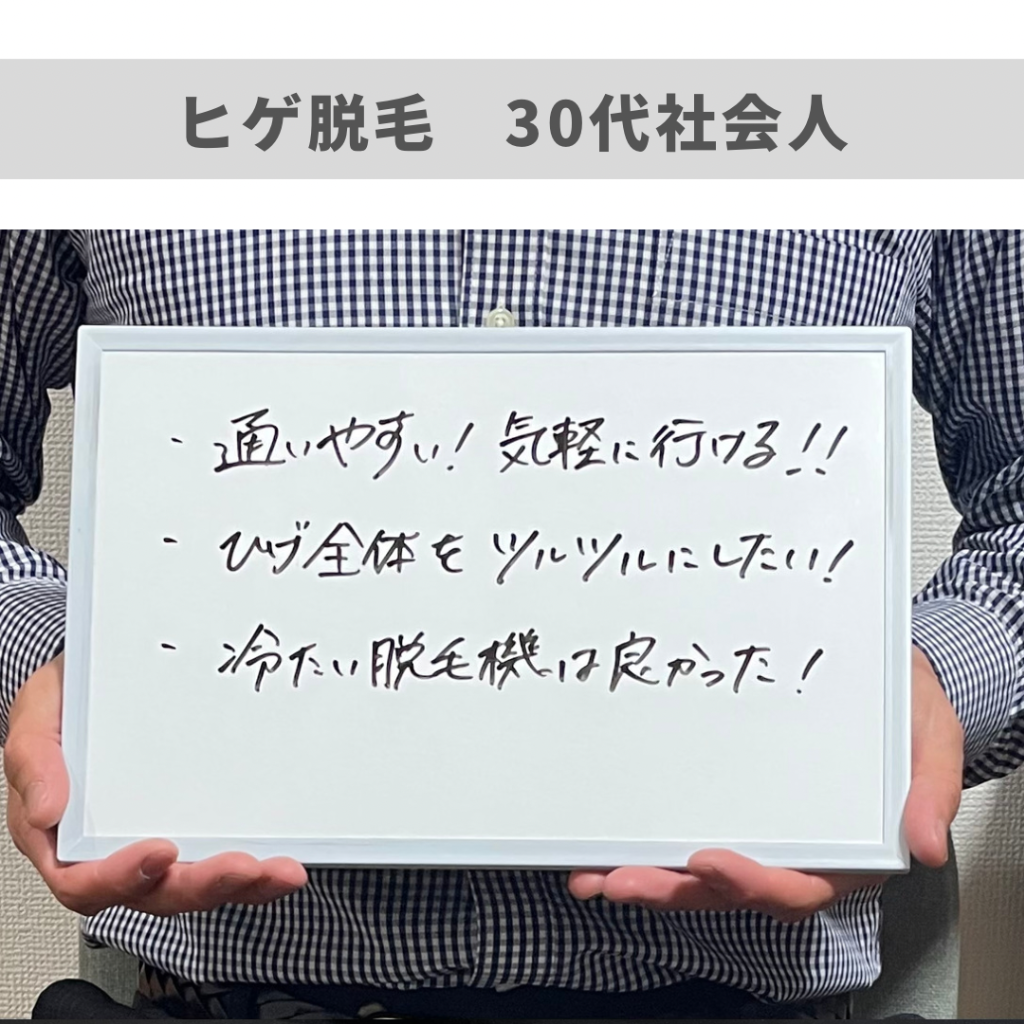 ヒゲ脱毛　30代社会人
- 通いやすい! 気軽に行ける!!
- ひげ全体を ツルツルにしたい!
- 冷たい脱毛機は良かった!